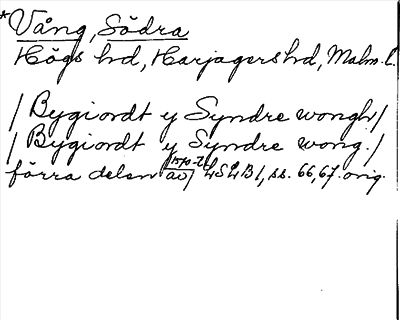 *Vång, Södra
Högs hd, Harjagers hd, Malm. l.
/ Bygiordt y Syndre wongh /
/ Bygiordt y Syndre wong. /
förra delen av 1570-t. LSÅB 1, ss. 66, 67. orig.